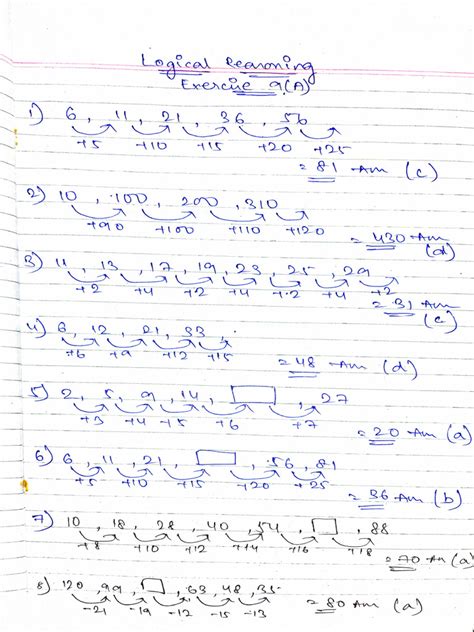 Logical Reasoning
Exercise 9(A)
1) 6, 11, 21, 36, 56
+5 +10 +15 +20 +25
= 81 Ans (c)
2) 10, 100, 200, 310
+90 +100 +110 +120
= 430 Ans (d)
3) 11, 13, 17, 19, 23, 25, 29
+2 +4 +2 +4 +2 +4 +2
= 31 Ans (c)
4) 6, 12, 21, 33,
+6 +9 +12 +15
= 48 Ans (d)
5) 2, 5, 9, 14, , 27
+3 +4 -15 +6 +7
= 20 Ans (a)
6) 6, 11, 21, , 56, 81
+5 +10 +15 +20 +25
= 36 Ans (b)
7) 10, 18, 28, 40, 54, , 88
+8 +10 +12 +14 +16 +18
= 70 An (a)
8) 120, 99, , 63, 48, 35
-21 -19 -12 -15 -13
= 80 Ans (a)